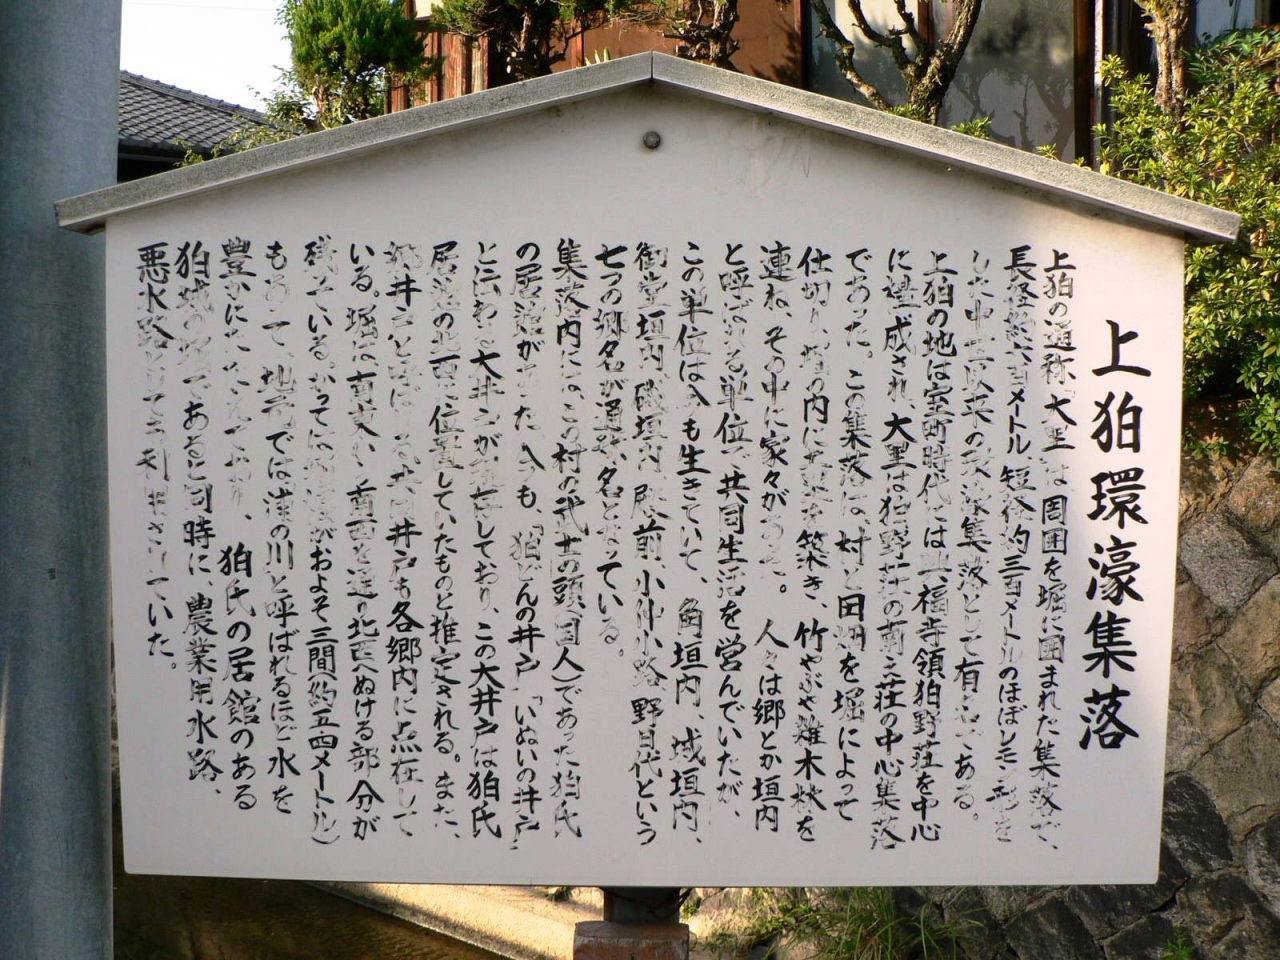 上狛環濠集落
上狛の通称、大里は周囲を堀に囲まれた集落で、
長径約六百メートル 短径約三百メートルのほぼレモン形を
した中世以来の環濠集落として有名である。
上狛の地は室町時代には興福寺領狛野荘を中心
に構成され、大里は狛野荘の南之荘の中心集落
であった。この集落は、村と田畑を堀によって
仕切り、堀の内に 築き、竹やぶや雑木林を
連ね、その中に家々があった。 人々は郷とか垣内
と呼ばれる単位で共同生活を営んでいたが、
この単位は今も生きていて、 角垣内、城垣内、
御堂垣内、磯垣内、殿前、小仲小路、野日代という
七つの郷名が通称名となっている。
集落内には、この村の武士の頭(国人)であった狛氏
の居館があった。今も、「狛どんの井戸」「いぬいの井戸」
と云われる大井戸が現存しており、この大井戸は狛氏
居館の北西に位置していたものと推定される。また、
郷井戸と呼ばれる共同井戸も各郷内に点在して
いる。堀は南東から南西を辺り北西へぬける部分が
残っている。かつては 環濠がおよそ三間(約五・四メートル)
もあって、地元では津の川と呼ばれるほど水を
豊かにたたえており、狛氏の居館のある
狛城の堀であると同時に、農業用水路、
悪水路としても利用されていた。